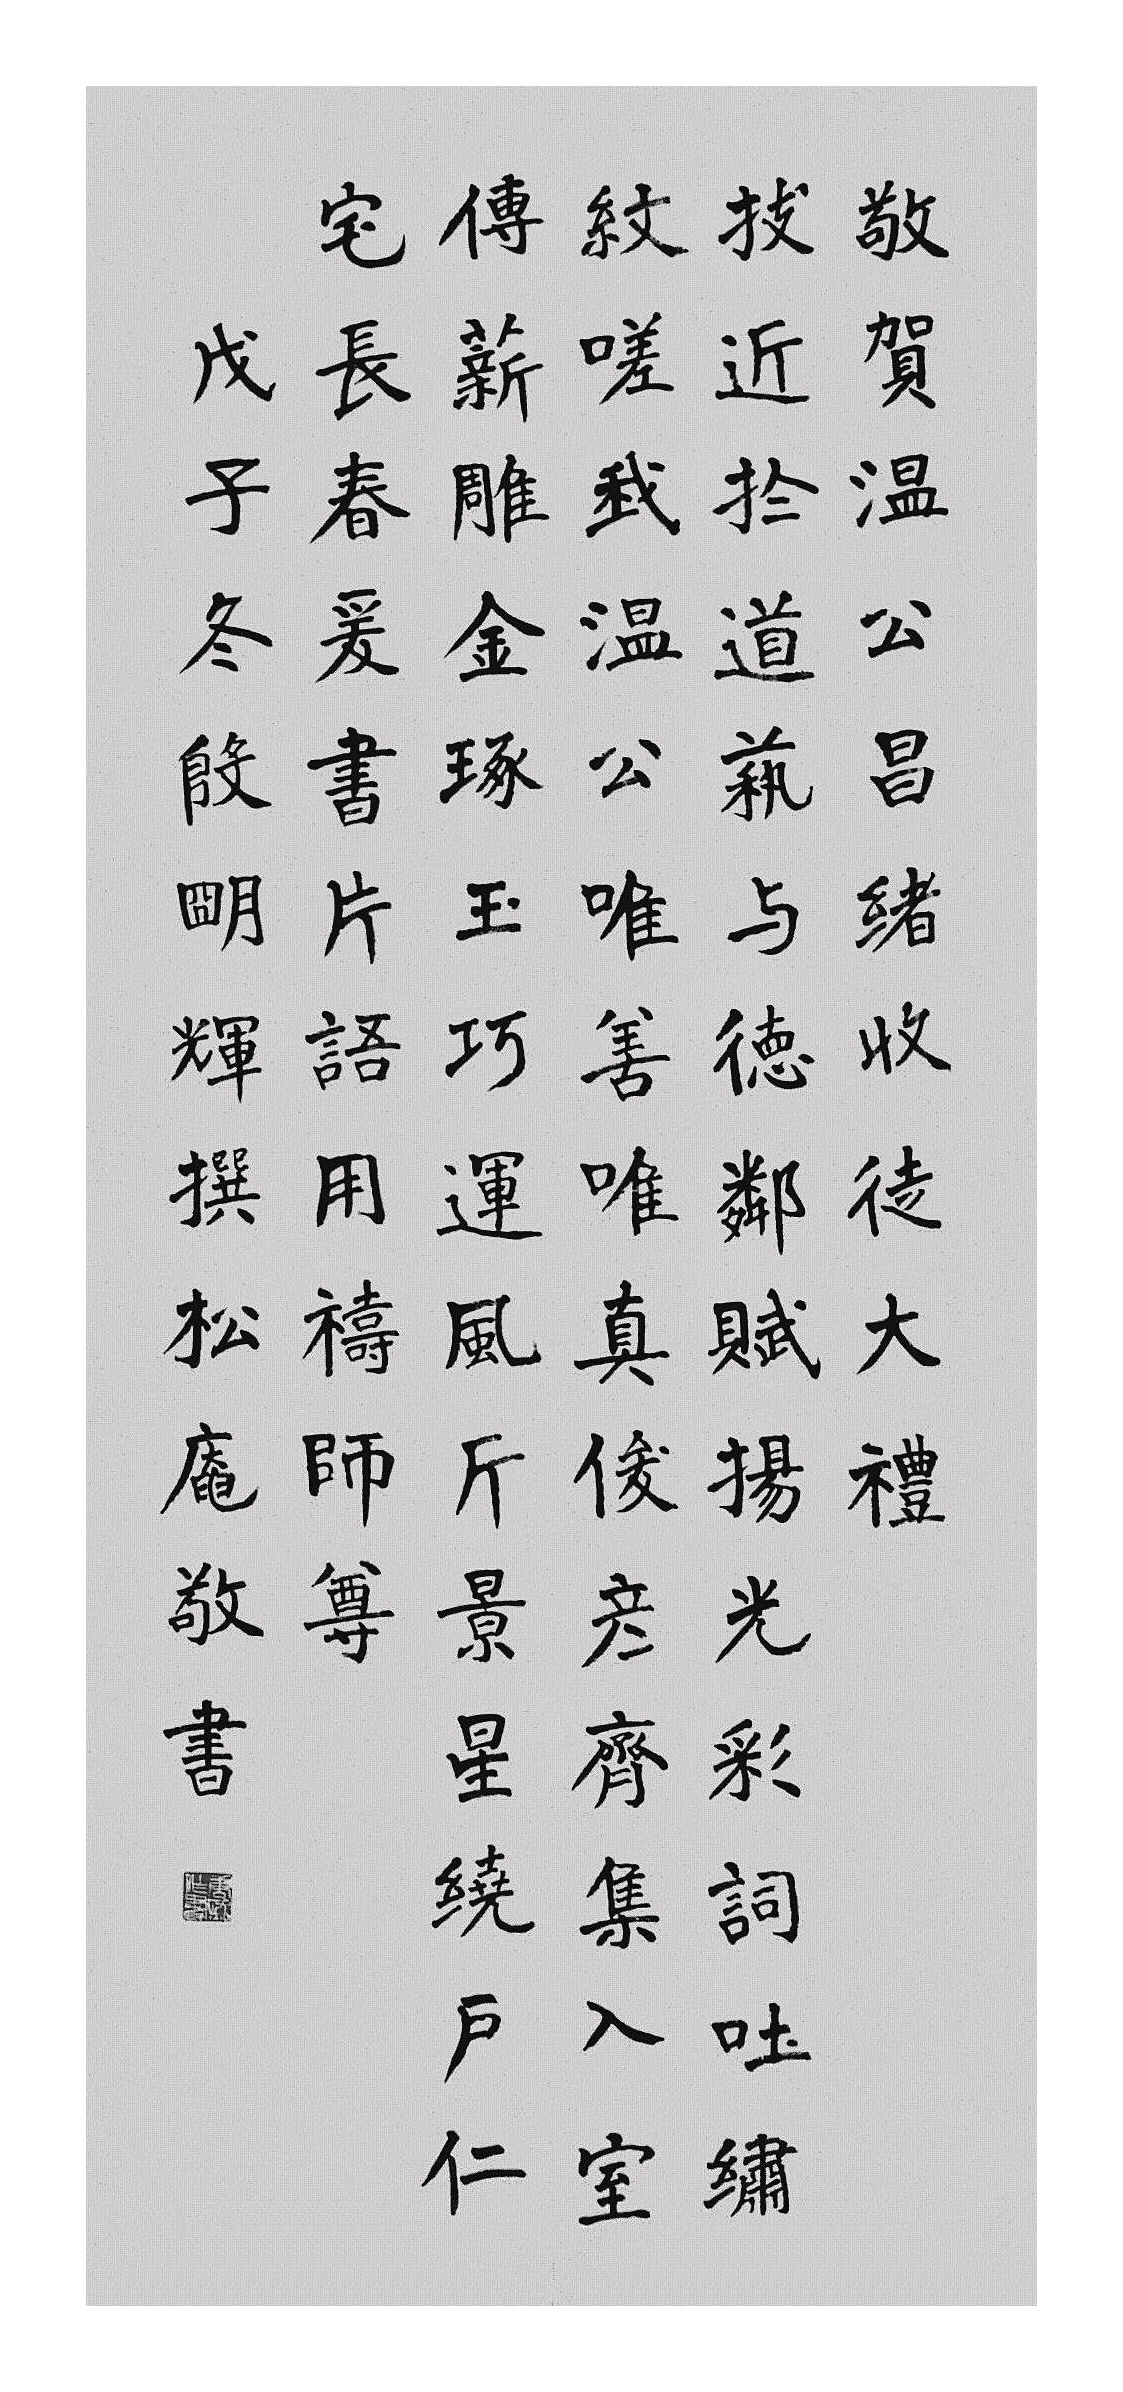 敬賀温公昌緒收徒大禮
技近扵道蓺与德鄰賦揚光彩詞吐繡
紋嗟我温公唯善唯真俊彦齊集入室
傳薪雕金琢玉巧運風斤景星繞户仁
宅長春爰書片語用禱師尊
戊子冬殷明輝撰松庵敬書